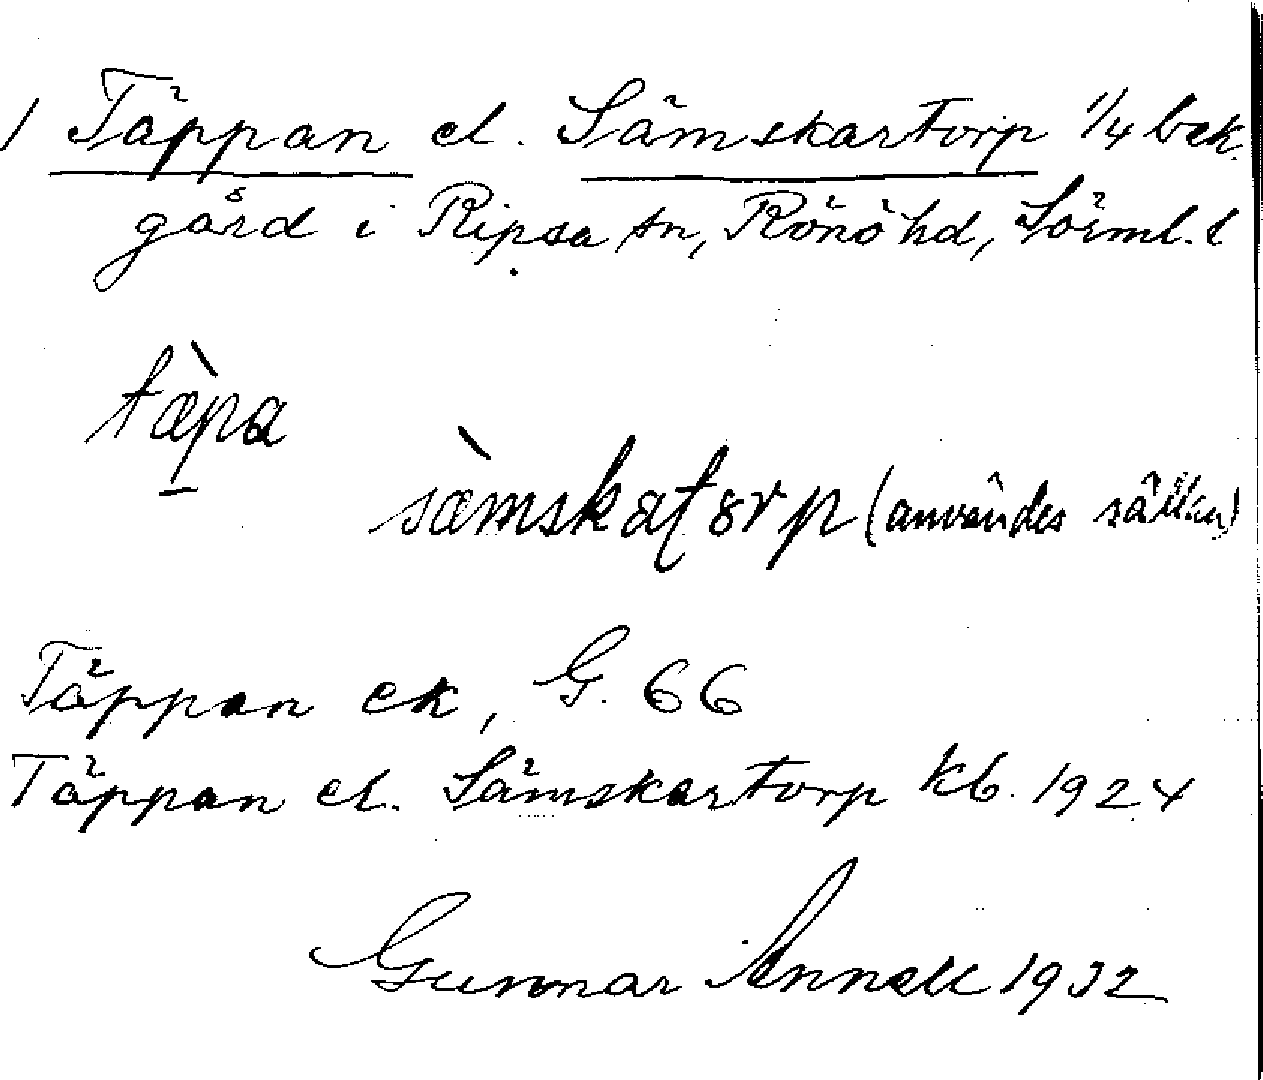 / Täppan el. Sämskartorp 1/4 bek.
gård i Ripsa sn, Rönö hd, Sörml. l
tæ̀pa
sæ̀mskatorp (användes sällan)
Täppan ek, G. 66
Täppan el. Sämskartorp kb. 1924
Gunnar Annell 1932